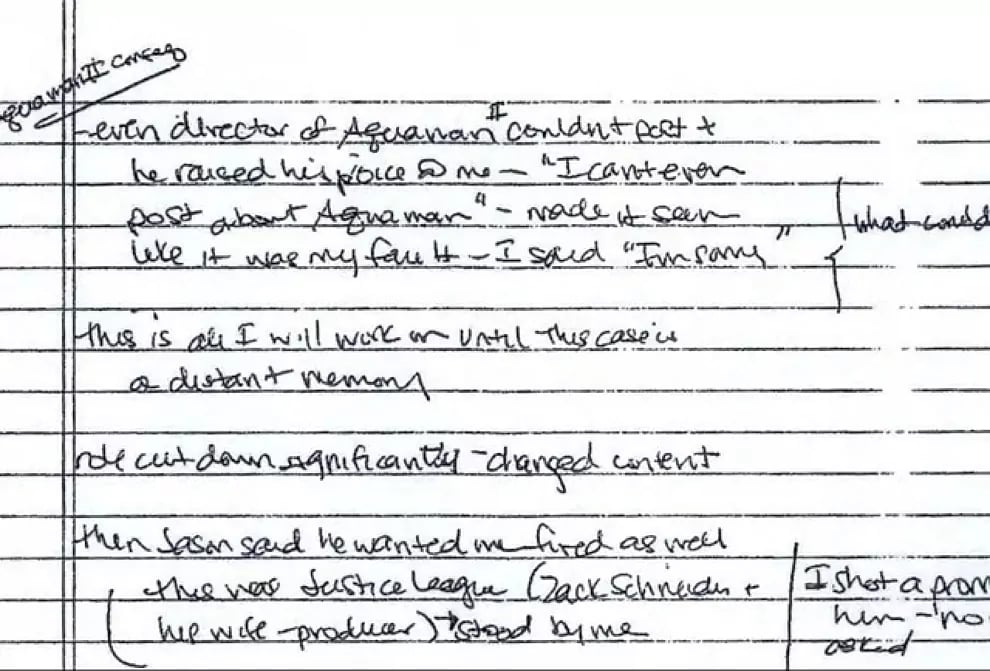 Aquaman II conseq
-even director of Aquaman II couldnt post +
he raised his voice @ me - "I cant even
post about Aquaman" - made it seem
like it was my fault - I said "Im sorry"
what could
this is all I will work on until this case is
a distant memory
role cut down significantly - changed content
then Jason said he wanted me fired as well
this was Justice League (Zack Schneider +
his wife - producer) → stood by me
I shot a prom
him - no
asked